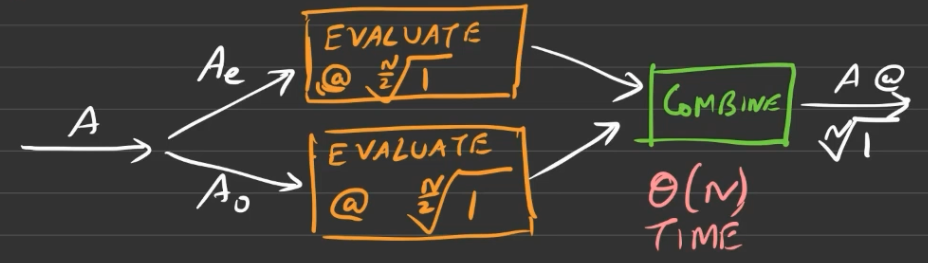 A
Ae
EVALUATE
@ N/2√1
Ao
EVALUATE
@ N/2√1
COMBINE
Θ(N)
TIME
A @
N√1